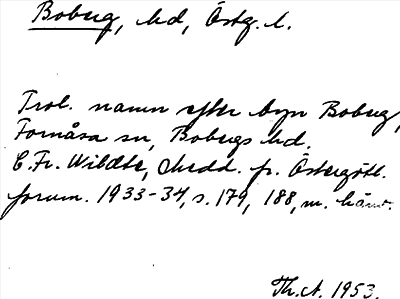 Boberg, hd, Östg. l.
Trol. namn efter byn Boberg,
Fornåsa sn, Bobergs hd.
C. Fr. Wibdte, Medd. fr. Östergötl.
fornm. 1933-34, s. 179, 188, m. hänv.
Th. A. 1953.